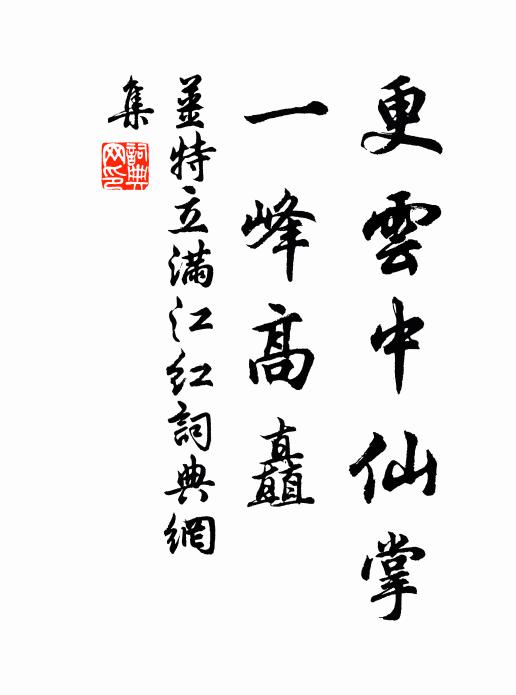 更雲中仙掌
一峰高矗
薑特立滿江紅詞典網
集
詞典网印